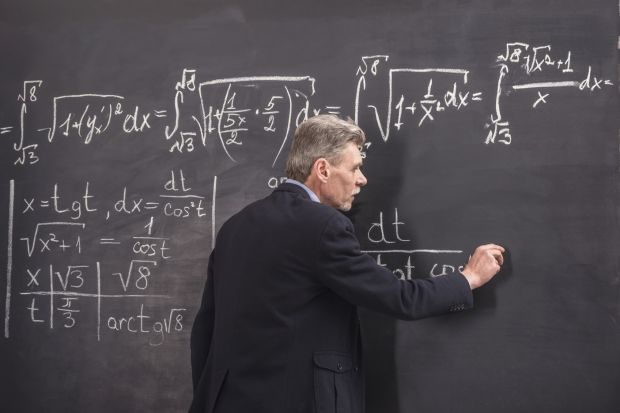 = ∫_√3^√8 √(1+(y'ₓ)²) dx = ∫_√3^√8 √(1+(1/(5x/2) · 5/2)²) dx = ∫^√8 √(1+1/x²) dx = ∫_√3^√8 √(x²+1)/x dx =
x = tgt, dx = dt/cos²t
√(x²+1) = 1/cost
x | √3 | √8
t | π/3 | arctg√8
ar
dt